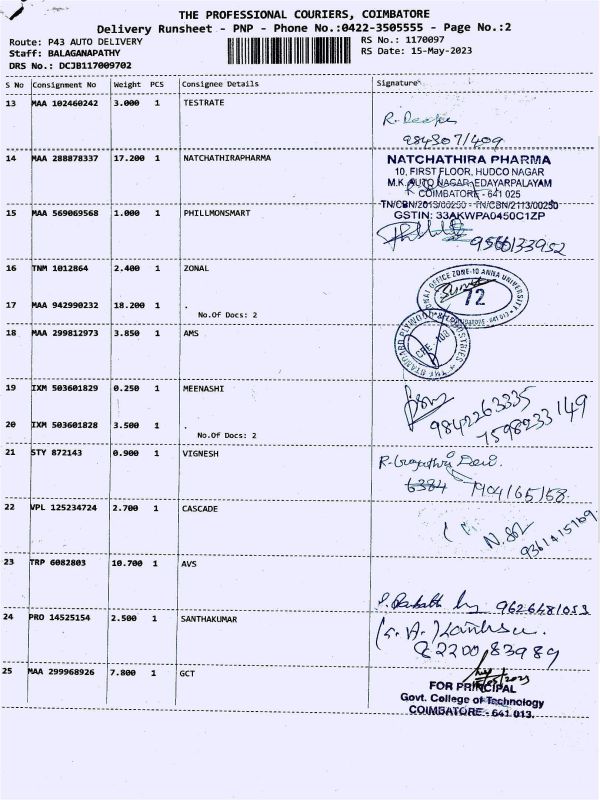 THE PROFESSIONAL COURIERS, COIMBATORE
Delivery Runsheet - PNP - Phone No.:0422-3505555 - Page No.:2
Route: P43 AUTO DELIVERY
Staff: BALAGANAPATHY
DRS No.: DCJB117009702
RS No.: 1170097
RS Date: 15-May-2023
S No Consignment No Weight PCS Consignee Details Signature
13 MAA 102460242 3.000 1 TESTRATE
R.
14 MAA 288878337 17.200 1 NATCHATHIRAPHARMA
NATCHATHIRA PHARMA
10, FIRST FLOOR, HUDCO NAGAR
M.K. AUTO NAGAR, EDAYARPALAYAM
COIMBATORE - 641 025
GSTIN: 33AKWPA0450C1ZP
15 MAA 569069568 1.000 1 PHILLMONSMART
16 TNM 1012864 2.400 1 ZONAL
ZONE-10 ANNA UNIVERSITY
72
17 MAA 942990232 18.200 1 .
No.Of Docs: 2
18 MAA 299812973 3.850 1 AMS
19 IXM 503601829 0.250 1 MEENASHI
9842263335
7598233149
20 IXM 503601828 3.500 1 .
No.Of Docs: 2
21 STY 872143 0.900 1 VIGNESH
22 VPL 125234724 2.700 1 CASCADE
23 TRP 6082803 10.700 1 AVS
9626481053
24 PRO 14525154 2.500 1 SANTHAKUMAR
82200 83989
25 MAA 299968926 7.800 1 GCT
FOR PRINCIPAL
Govt. College of Technology
COIMBATORE - 641 013.